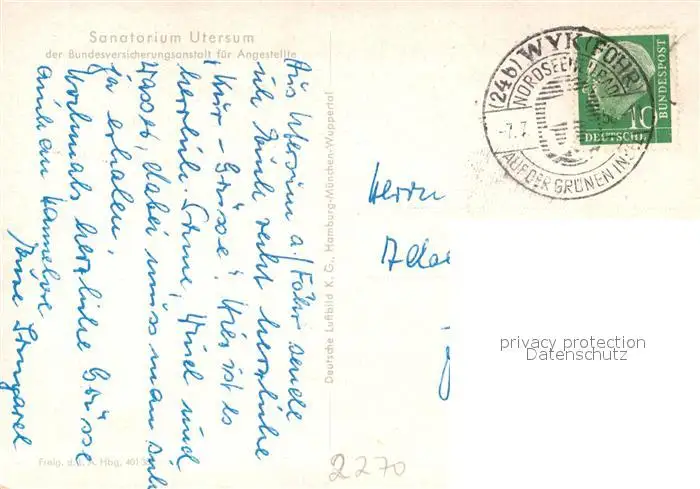 Sanatorium Utersum
der Bundesversicherungsanstalt für Angestellte
Aus Utersum a/Föhr sende
ich Euch recht herzliche
"Kur-Grüsse". Hier ist es
herrlich. Sonne, Wind und
Wasser, dabei muss man sich
ja erholen.
Nochmals herzliche Grüsse
auch an Hannelore
Deutsche Luftbild K. G., Hamburg-München-Wuppertal
Freig. d. L. A. Hbg. 401
(24b) WYK (FÖHR)
NORDSEEHEILBAD
-7.7.
AUF DER GRÜNEN INSEL
10
DEUTSCHE
BUNDESPOST
Herrn
privacy protection
Datenschutz
2270